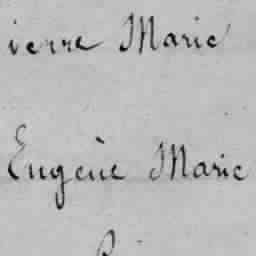 ierre Marie
Eugène Marie